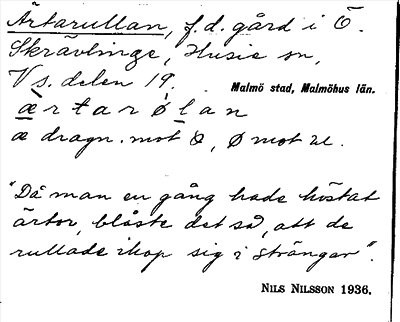 Ärtarullan, f.d. gård i Ö.
Skrävlinge, Husie sn,
Vs. delen 19.
Malmö stad, Malmöhus län.
æ r t a r ø l a n
æ dragn. mot &, ø mot u.
"Då man en gång hade höstat
ärtor, blåste det så, att de
rullade ihop sig i strängar".
NILS NILSSON 1936.